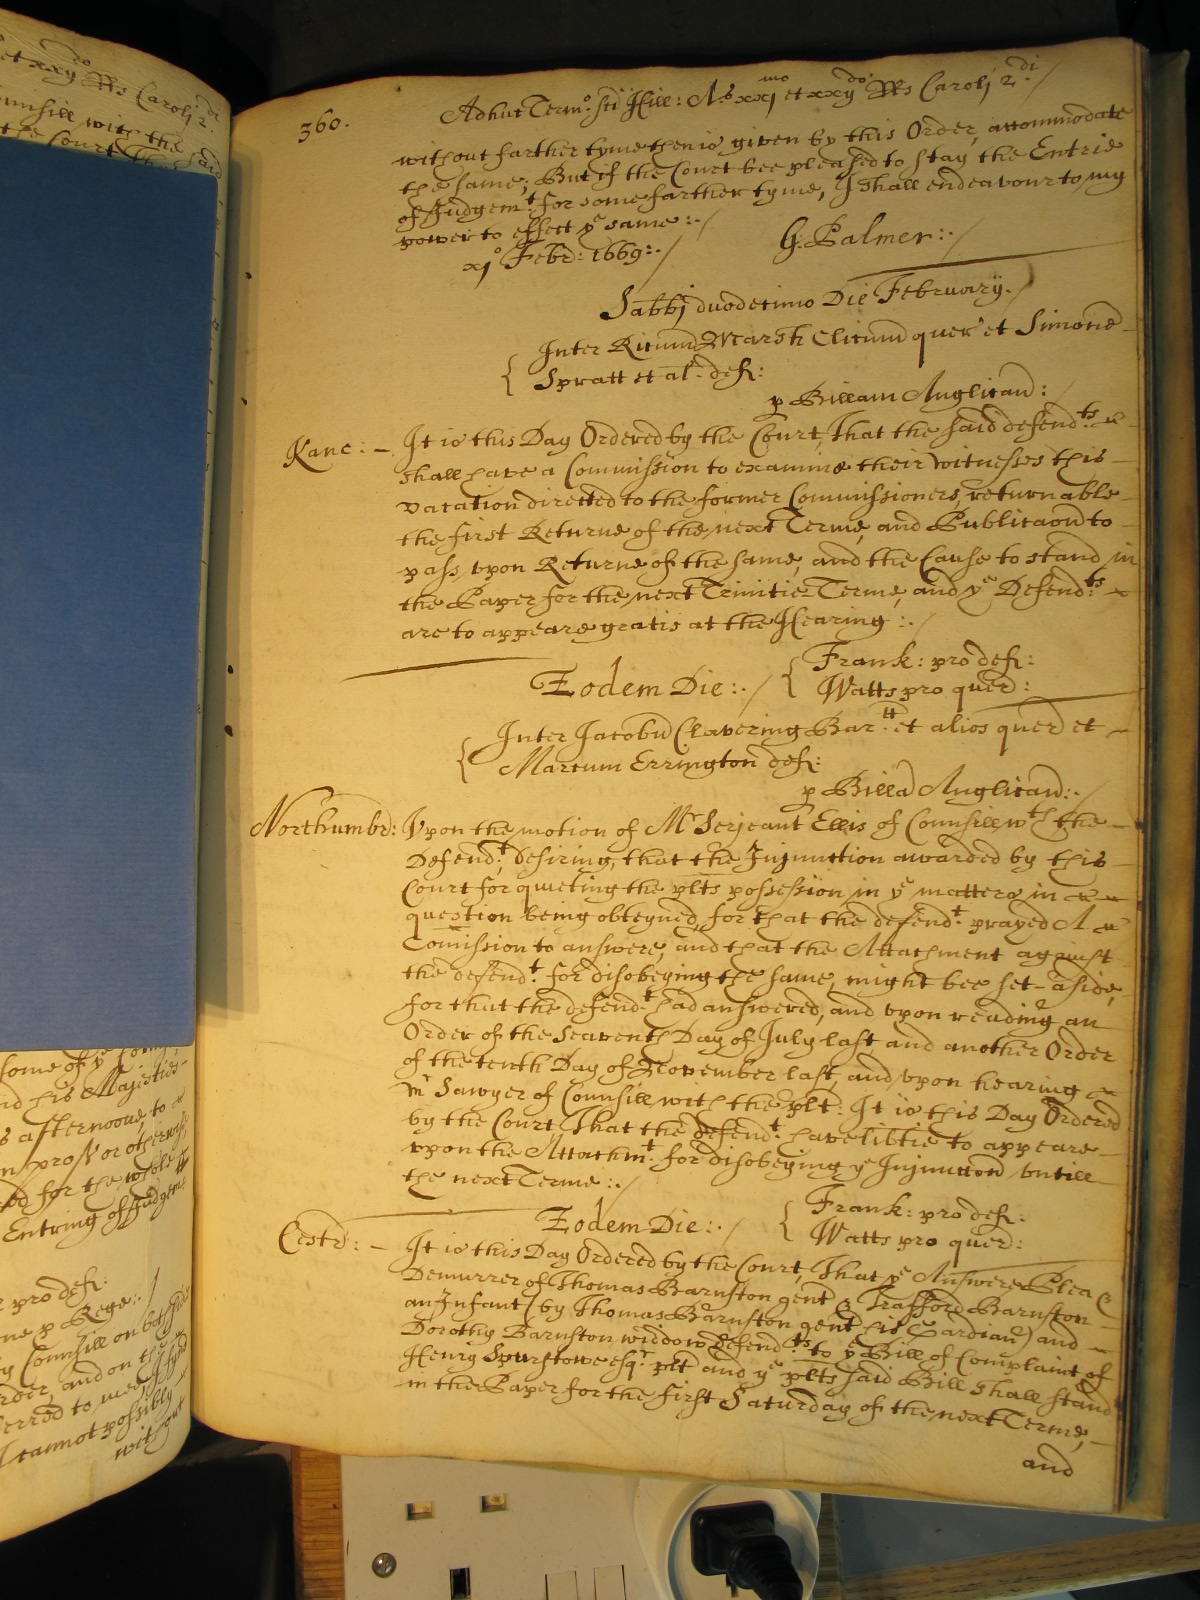 et xxij do Rs Caroli 2 di
Counsill with the said
the Court
some of ye
nd his Majesties
s afternoone, to
n pro
ed for the whole
Entring of Judgemt
pro def:
p Rege:.
Counsill on both sides
order, and on the
erred to mee
I cannot possibly
without
360.
Adhuc Termo: Sci Hill: As xxj mo et xxij do Rs Caroli 2 di
without farther tyme then is given by this Order, accommodate
the same; But if the Court bee pleased to stay the Entrie
of Judgem:t for some farther tyme, I shall endeavour to my
power to effect ye same:./
xjo Febr: 1669:./ G: Palmer:./
Sabbj duodecimo Die February./
Inter Ricum Marsh Clicum quer et Simone
Spratt et al: def:
p Billam Anglican:/
Kanc: It is this Day Ordered by the Court, That the said defend:ts
shall have a Commission to examine their witnesses this
vacation directed to the former Commissioners, returnable
the first Returne of the next Terme, and Publicaon to
pass vpon Returne of the same, and the Cause to stand in
the Paper for the next Trinitie Terme, and ye Defend:ts
are to appeare gratis at the Hearing:./
Eodem Die:./ Frank: pro def:
Watts pro quer:
Inter Jacobu Clavering Bar:tt et alios quer et
Marcum Errington def:
p Billa Anglican:./
Northumbr: Vpon the motion of Mr Serjeant Ellis of Counsill wth the
Defend:t desiring, that the Injunction awarded by this
Court for quieting the plts possession in ye matters in
question being obteyned, for that the defend:t prayed A
Comission to answere, and that the Attachment against
the defend:t for disobeying the same, might bee set aside,
for that the defend:t had answered, and vpon reading an
Order of the Seaventh Day of July last and another Order
of the tenth Day of November last, and vpon hearing
mr Sawyer of Counsill with the plt: It is this Day Ordered
by the Court That the defend:t have libtie to appeare
vpon the Attachm:t for disobeying ye Injunction vntill
the next Terme:./
Eodem Die:./ Frank: pro def:
Watts pro quer:
Cestr: It is this Day Ordered by the Court, That ye Answere Plea &
Demurrer of Thomas Barnston gent & Trafford Barnston
an Infant (by Thomas Barnston gent his Gardian) and
Dorothy Barnston widdow defend:ts to ye Bill of Complaint of
Henry Spurstowe esqr plt and ye plts said Bill shall stand
in the Paper for the first Saturday of the next Terme,
and